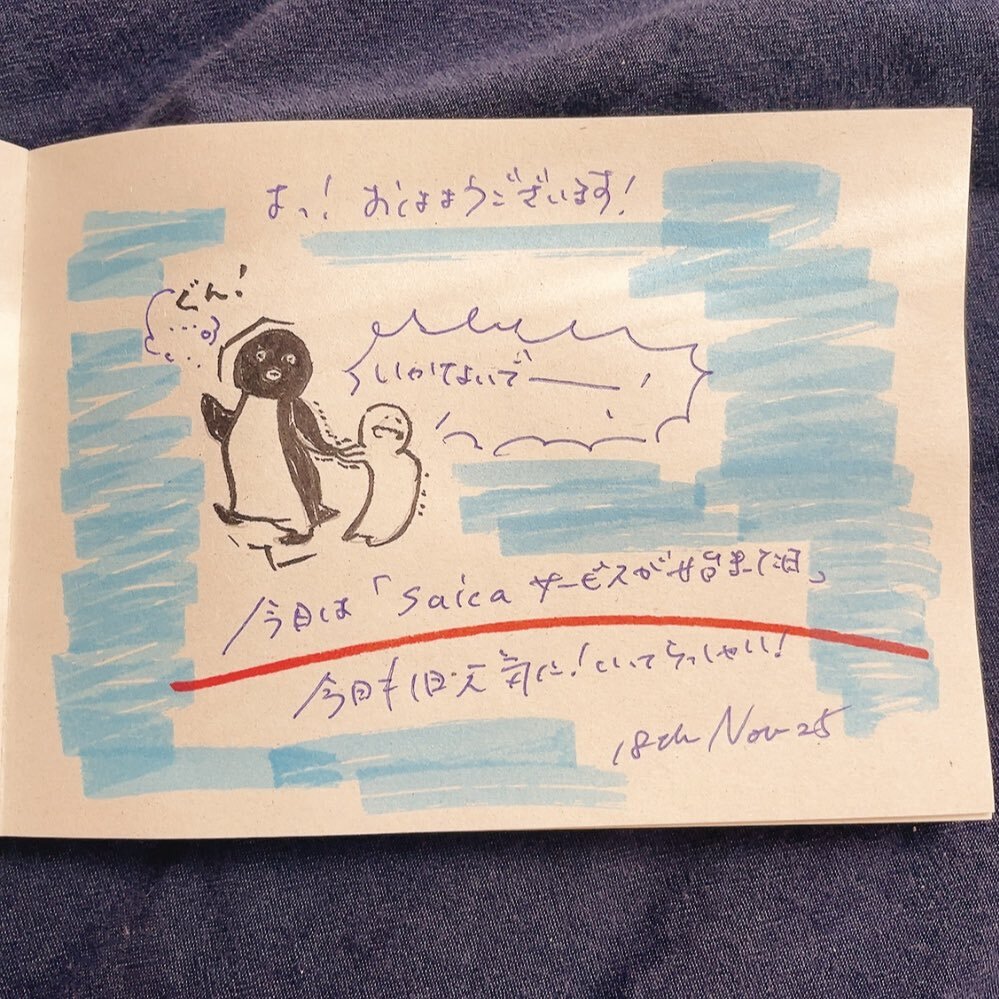 あっ！おはようございます！
ぐん！
いかないでー！
今日は「Saicaサービスが始まって日」
今日も1日元気に！いいてらっしゃい！
18th Nov 25